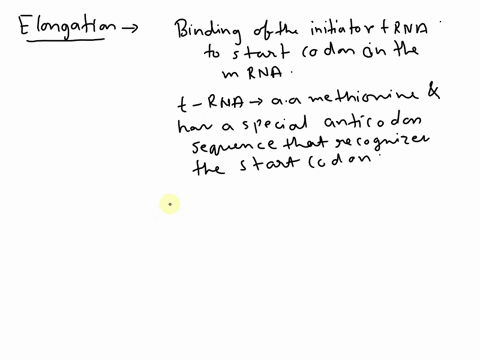 Elongation → Binding of the initiator tRNA
to start codon on the
mRNA.
t-RNA → a.a methionine &
has a special anticodon
sequence that recognizes
the start codon.